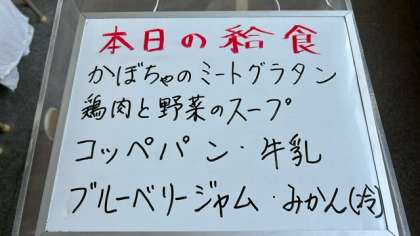 本日の給食
かぼちゃのミートグラタン
鶏肉と野菜のスープ
コッペパン・牛乳
ブルーベリージャム・みかん(冷)